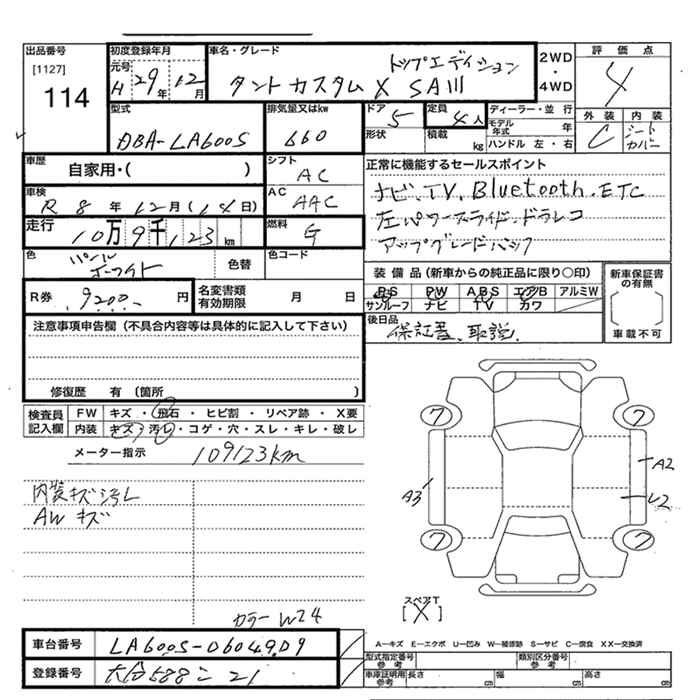 出品番号
[1127]
114
初度登録年月
元号
H 29年 12月
車名・グレード
トップエディション
タント カスタム X SAIII
2WD
・
4WD
評価点
4
外装 内装
C シート
カバー
型式
DBA-LA600S
排気量又はkw
660
ドア
5
形状
定員
4人
積載 kg
ディーラー・並行
モデル年式 年
ハンドル 左・右
車歴
自家用・( )
シフト
AC
正常に機能するセールスポイント
ナビ.TV.Bluetooth.ETC
左パワースライド.ドラレコ
アップグレードパック
車検
R 8年 12月(14日)
AC
AAC
走行
10万9千123km
燃料
G
色
パール
ホワイト
色替
色コード
装備品(新車からの純正品に限り〇印)
PS PW ABS エアB アルミW
サンルーフ ナビ TV カワ
新車保証書
の有無
車載不可
R券
9200 円
名変書類
有効期限 月 日
後日品
保証書、取説
注意事項申告欄(不具合内容等は具体的に記入して下さい)
修復歴 有(箇所 )
検査員
記入欄
FW キズ・飛石・ヒビ割・リペア跡・X要
内装 キズ・汚レ・コゲ・穴・スレ・キレ・破レ
メーター指示 109123km
内装キズ汚レ
AWキズ
カラー W24
7 7
A3
A2
U2
7 7
スペアT
[X]
車台番号 LA600S-0604909
登録番号 大分588こ21
A-キズ E-エクボ U-凹み W-補修跡 S-サビ C-腐食 XX-交換済
型式指定番号
参考
類別区分番号
参考
車庫証明用
参考
長さ cm 幅 cm 高さ cm